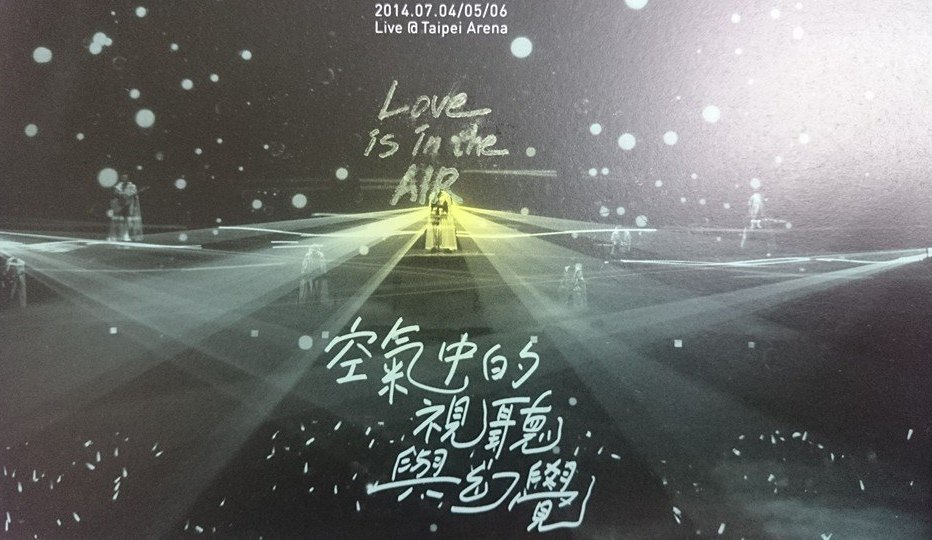 2014.07.04/05/06
Live @ Taipei Arena
Love
is in the
AIR
空氣中的
視聽
與幻覺